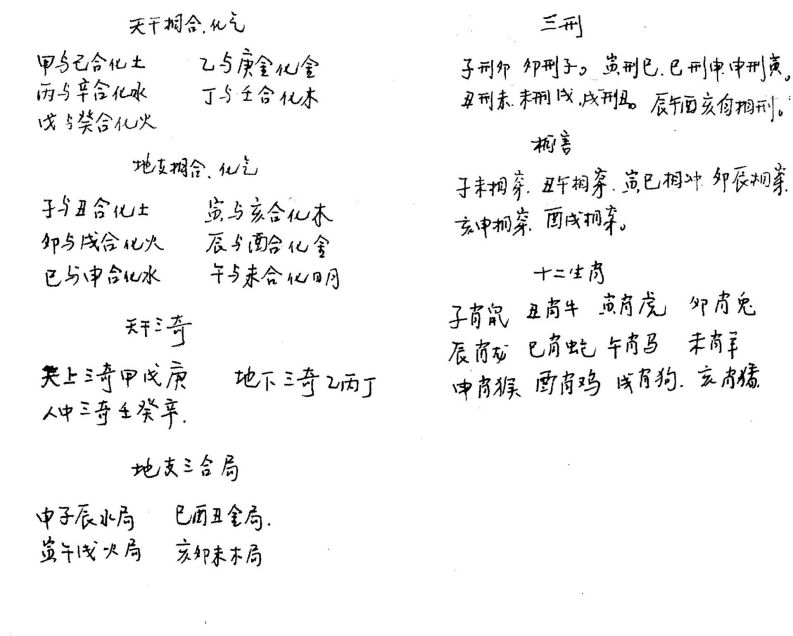 天干相合、化气
甲与己合化土 乙与庚金化金
丙与辛合化水 丁与壬合化木
戊与癸合化火
地支相合、化气
子与丑合化土 寅与亥合化木
卯与戌合化火 辰与酉合化金
巳与申合化水 午与未合化日月
天干三奇
天上三奇甲戊庚 地下三奇乙丙丁
人中三奇壬癸辛.
地支三合局
申子辰水局 巳酉丑金局.
寅午戌火局 亥卯未木局
三刑
子刑卯 卯刑子。寅刑巳、巳刑申、申刑寅。
丑刑未、未刑戌、戌刑丑。辰午酉亥自相刑。
相害
子未相穿. 丑午相穿. 寅巳相冲 卯辰相穿.
亥申相穿. 酉戌相穿。
十二生肖
子肖鼠 丑肖牛 寅肖虎 卯肖兔
辰肖龙 巳肖蛇 午肖马 未肖羊
申肖猴 酉肖鸡 戌肖狗. 亥肖猪